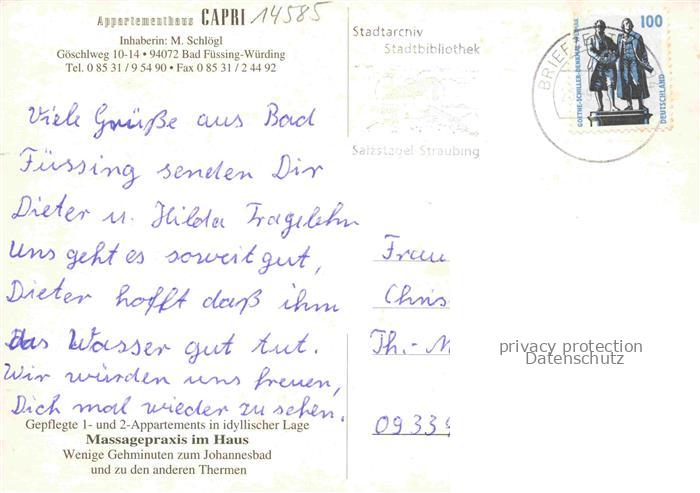 Appartementhaus CAPRI 14585
Inhaberin: M. Schlögl
Göschlweg 10-14 • 94072 Bad Füssing-Würding
Tel. 0 85 31 / 9 54 90 • Fax 0 85 31 / 2 44 92
Viele Grüße aus Bad
Füssing senden Dir
Dieter u. Hilda Tragelehn
Uns geht es soweit gut,
Dieter hofft daß ihm
das Wasser gut tut.
Wir würden uns freuen,
Dich mal wieder zu sehen.
Gepflegte 1- und 2-Appartements in idyllischer Lage
Massagepraxis im Haus
Wenige Gehminuten zum Johannesbad
und zu den anderen Thermen
Stadtarchiv
Stadtbibliothek
Salzstadel Straubing
BRIEF
100
GOETHE-SCHILLER-DENKMAL WEIMAR
DEUTSCHLAND
Frau
Chris
Th.-M
0933
privacy protection
Datenschutz